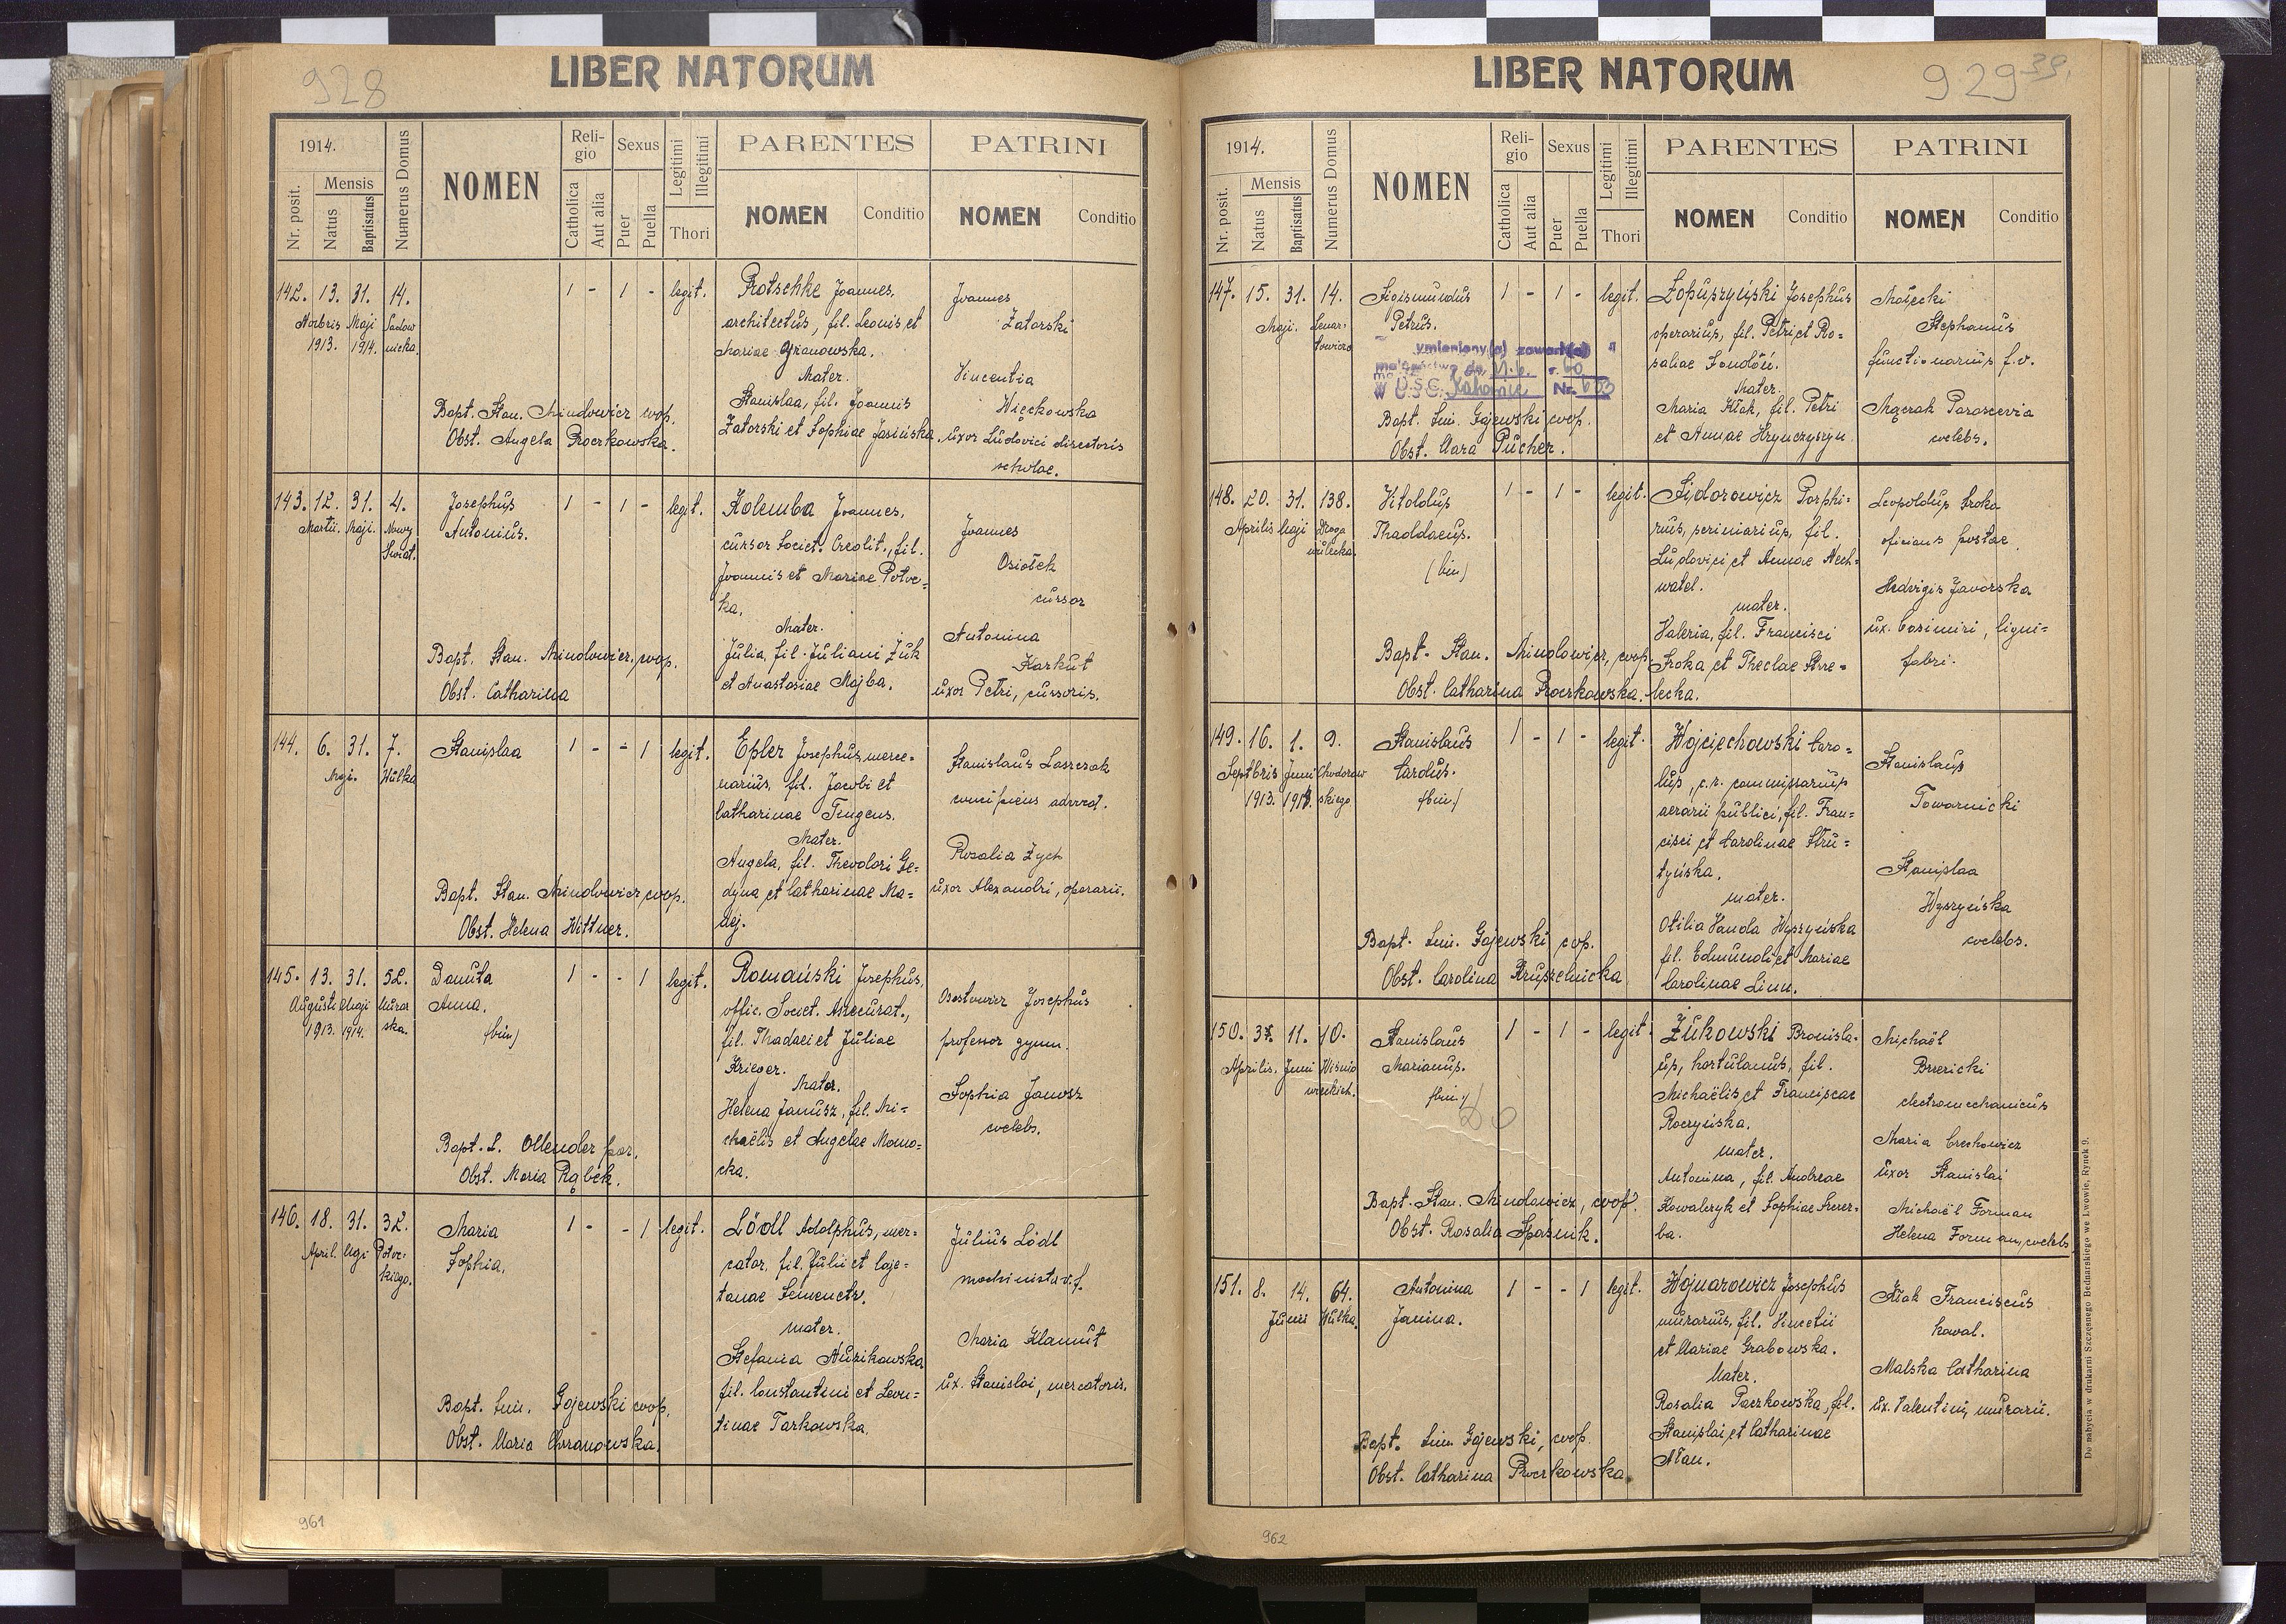 928
LIBER NATORUM
1914.
Nr. posit.
Mensis
Natus
Baptisatus
Numerus Domus
NOMEN
Religio
Catholica
Aut alia
Sexus
Puer
Puella
Legitimi
Illegitimi
Thori
PARENTES
NOMEN
Conditio
PATRINI
NOMEN
Conditio
142. 13. 31. 14.
Novbris Maji
1913. 1914.
1 - 1 - legit.
Protschke Joannes,
architectus, fil. Leonis et
Mariae Granowska.
Mater.
Stanislaa, fil. Joannis
Zatorski et Sophiae Jasińska.
Joannes
Zatorski
Vincentia
Więckowska
uxor Ludovici directoris
scholae.
Bapt. Stan. Mindowicz coop.
Obst. Angela Proczkowska.
143. 12. 31. 4.
Martii. Maji. Nowy
Świat.
Josephus
Antonius.
1 - 1 - legit.
Kolemba Joannes,
cursor Societ. Credit., fil.
Joannis et Mariae Potoc=
ka.
Mater.
Julia, fil. Juliani Żuk
et Anastasiae Majba.
Joannes
Osiołek
cursor
Antonina
Karkut
uxor Petri, cursoris.
Bapt. Stan. Mindowicz, coop.
Obst. Catharina
144. 6. 31. 7.
Maji. Wulka
Stanislaa
1 - - 1 legit.
Epler Josephus, merce=
narius, fil. Jacobi et
Catharinae Tengens.
Mater.
Angela, fil. Theodori Ge=
dyna et Catharinae Ma=
dej.
Stanislaus Laszczak
concipiens advocat.
Rosalia Zych
uxor Alexandri, operarii.
Bapt. Stan. Mindowicz coop.
Obst. Helena Wittner.
145. 13. 31. 52.
Augusti Maji Murar
1913. 1914. ska.
Danuta
Anna.
(bin)
1 - - 1 legit.
Romański Josephus,
offic. Societ. Assecurat.,
fil. Thadaei et Juliae
Krieger.
Mater.
Helena Janusz, fil. Mi=
chaëlis et Angelae Mono=
cka.
Josephus
professor gymn.
Sophia Janosz
coelebs.
Bapt. L. Ollender par.
Obst. Maria Rąbek.
146. 18. 31. 32.
April. Maji Potoc=
kiego.
Maria
Sophia.
1 - - 1 legit.
Lödl Adolphus, mer=
cator, fil. Julii et Caje=
tanae Semenetz.
mater.
Stefania Murzikowska
fil. Constantini et Leon=
tinae Tarkowska.
Julius Lödl
machinista v. f.
Maria Klamut
ux. Stanislai, mercatoris.
Bapt. Sim. Gajewski coop.
Obst. Maria Chrzanowska.
961
929 39.
LIBER NATORUM
1914.
Nr. posit.
Mensis
Natus
Baptisatus
Numerus Domus
NOMEN
Religio
Catholica
Aut alia
Sexus
Puer
Puella
Legitimi
Illegitimi
Thori
PARENTES
NOMEN
Conditio
PATRINI
NOMEN
Conditio
147. 15. 31. 14.
Maji. Lenar=
towicza
Sigismundus
Petrus.
1 - 1 - legit.
ymieniony(a) zawarł(a)
małżeństwo dn.
w U.S.C. Katowice Nr.
Łopuszyński Josephus
operarius, fil. Petri et Ro=
saliae
Mater.
Maria Kłak, fil. Petri
et Annae Hrynczyszyn
Małecki
Stephanus
functionarius f.v.
Mączak Parascevia
coelebs.
Bapt. Sim. Gajewski coop.
Obst. Clara Pucher.
148. 20. 31. 138.
Aprilis Maji Droga
wulecka.
Vitoldus
Thaddaeus.
(bin)
1 - 1 - legit.
Sidorowicz Porphi=
rius, scriniarius, fil.
Ludovici et Annae Nech=
watel.
mater.
Valeria, fil. Francisci
Sroka et Theclae Strze=
lecka.
Leopoldus Sroka
oficians postae.
Hedvigis Javorska
ux. Casimiri, ligni=
fabri.
Bapt. Stan. Mindowicz, coop.
Obst. Catharina Proczkowska.
149. 16. 1. 9.
Septbris Juni Chodorow
1913. 1914. skiego
Stanislaus
Carolus.
(bin)
1 - 1 - legit.
Wojciechowski Caro=
lus, c.r. commissarius
aerarii publici, fil. Fran=
cisci et Carolinae Stru=
tyńska.
mater.
Otilia Vanda Wyszyńska
fil. Edmundi et Mariae
Carolinae Linn.
Stanislaus
Towarnicki
Stanislaa
Wyszyńska
coelebs.
Bapt. Sim. Gajewski coop.
Obst. Carolina Kruszelnicka
150. 11. 10.
Aprilis. Juni Wiśnio
wieckich.
Stanislaus
Marianus.
(bin)
1 - 1 - legit.
Żukowski Bronisla=
us, hortulanus, fil.
Michaëlis et Franciscae
Roczyńska.
mater.
Antonina, fil. Andreae
Kowalczyk et Sophiae Szczer=
ba.
Michaël
Brzezicki
electromechanicus
Maria Czechowicz
uxor Stanislai
Michaël Forman
Helena Forman, coelebs
Bapt. Stan. Mindowicz, coop.
Obst. Rosalia Spaśnik.
151. 8. 14. 64.
Junii Wulka.
Antonina
Janina.
1 - - 1 legit.
Wojnarowicz Josephus
murarius, fil. Vincetii
et Mariae Grabowska.
Mater.
Rosalia Paczkowska, fil.
Stanislai et Catharinae
Kłak Franciscus
kowal.
Malska Catharina
ux. Valentini, murarii.
Bapt. Sim. Gajewski, coop.
Obst. Catharina Proczkowska.
Do nabycia w drukarni Szczęsnego Bednarskiego we Lwowie, Rynek 9.
962